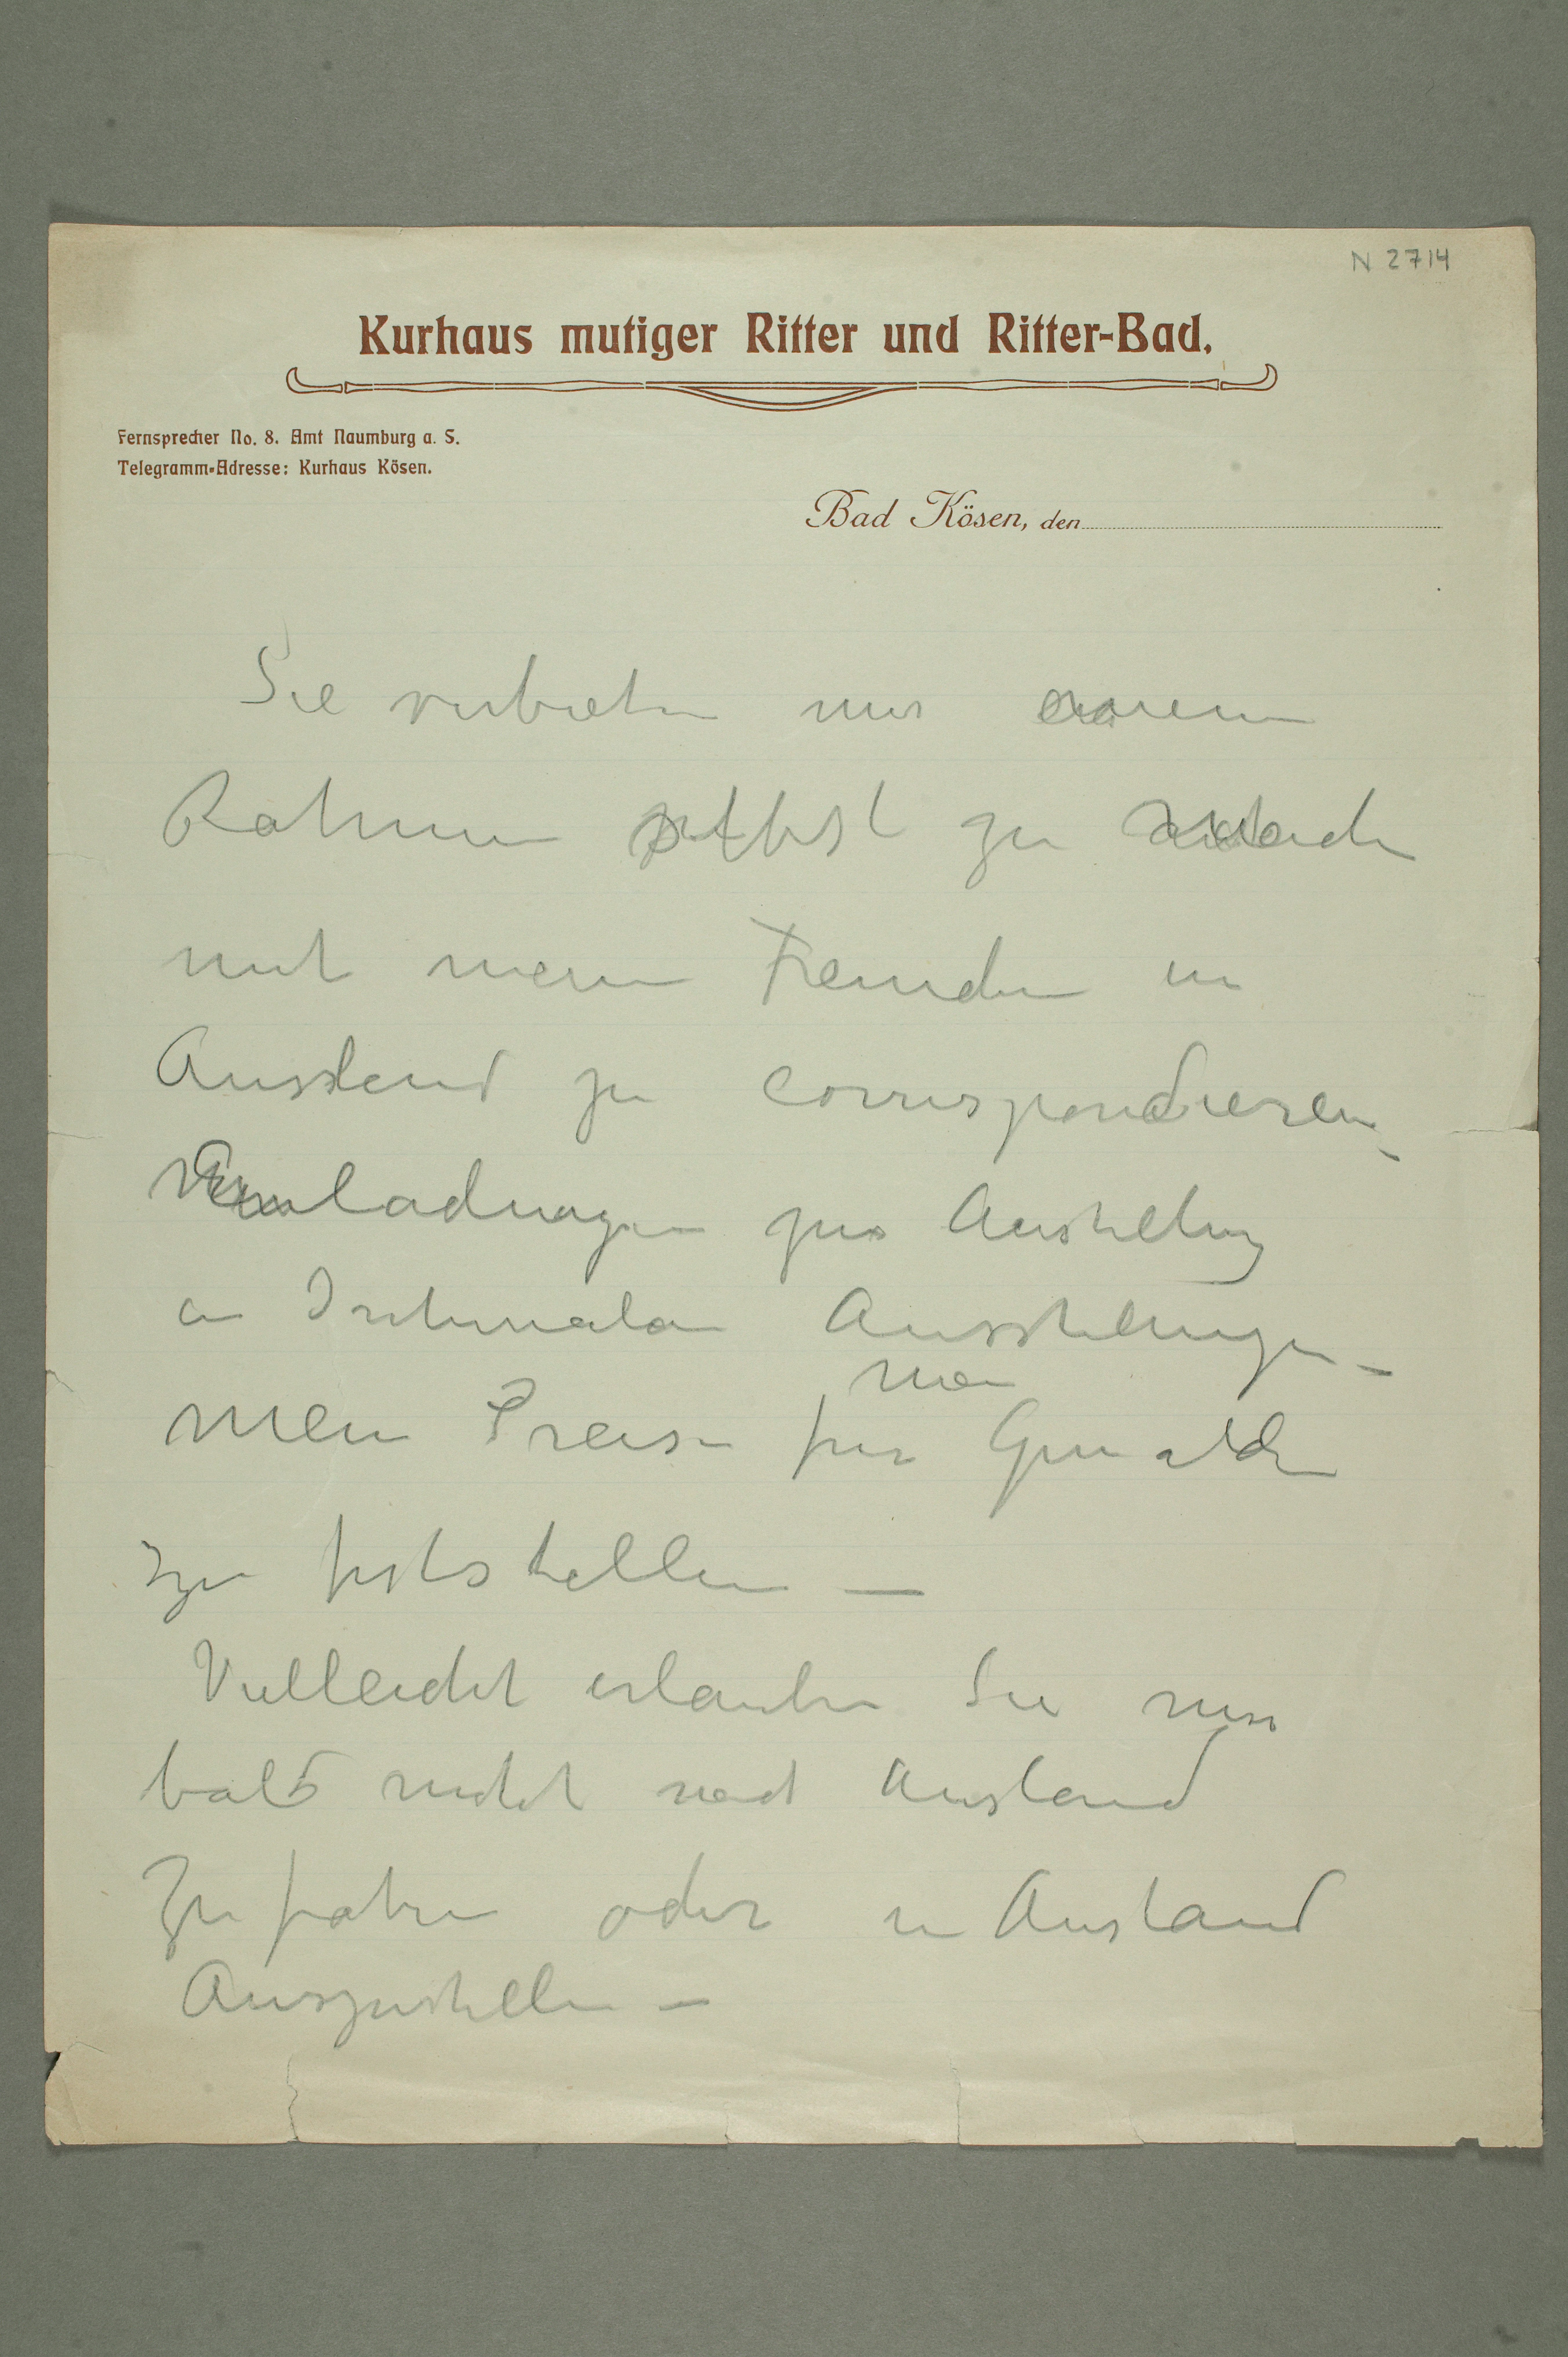 N 2714
Kurhaus mutiger Ritter und Ritter-Bad.
Fernsprecher No. 8. Amt Naumburg a. S.
Telegramm-Adresse: Kurhaus Kösen.
Bad Kösen, den
Sie verbieten mir einem
Rahmen selbst zu
mit meinen Freunden in
Ausland zu correspondieren –
Einladungen zur Austellung
an Ausstellungen –
mein
Mein Preise fur Gemälden
zu feststellen –
Vielleicht erlauben Sie mir
bald nicht nach Ausland
Zu fahren oder in Ausland
Auszustellen –